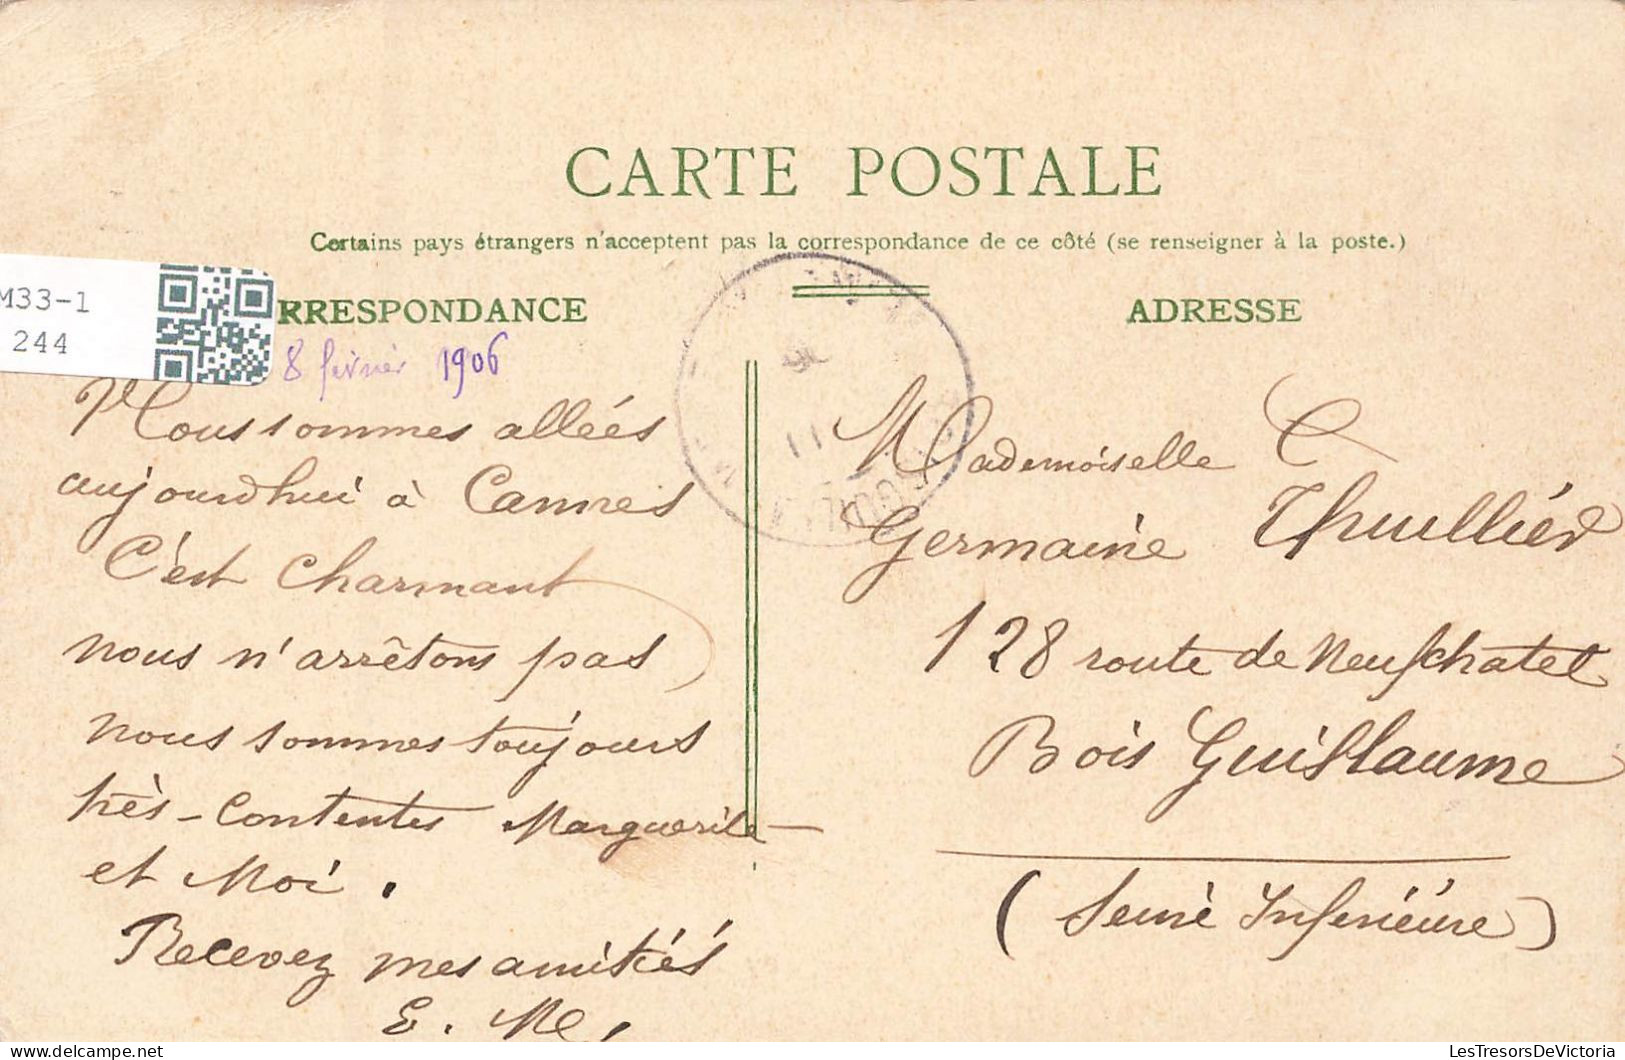 CARTE POSTALE
Certains pays étrangers n'acceptent pas la correspondance de ce côté (se renseigner à la poste.)
M33-1
244
RRESPONDANCE
8 février 1906
Nous sommes alleés
aujourdhui à Cannes
C'est charmant
nous n'arrêtons pas
nous sommes toujours
très-contentes Marguerite
et Moi.
Recevez mes amitiés
E. M.
ADRESSE
Mademoiselle
Germaine Thuilliér
128 route de Neufchatel
Bois Guillaume
(Seine Inferieure)
LesTresorsDeVictoria